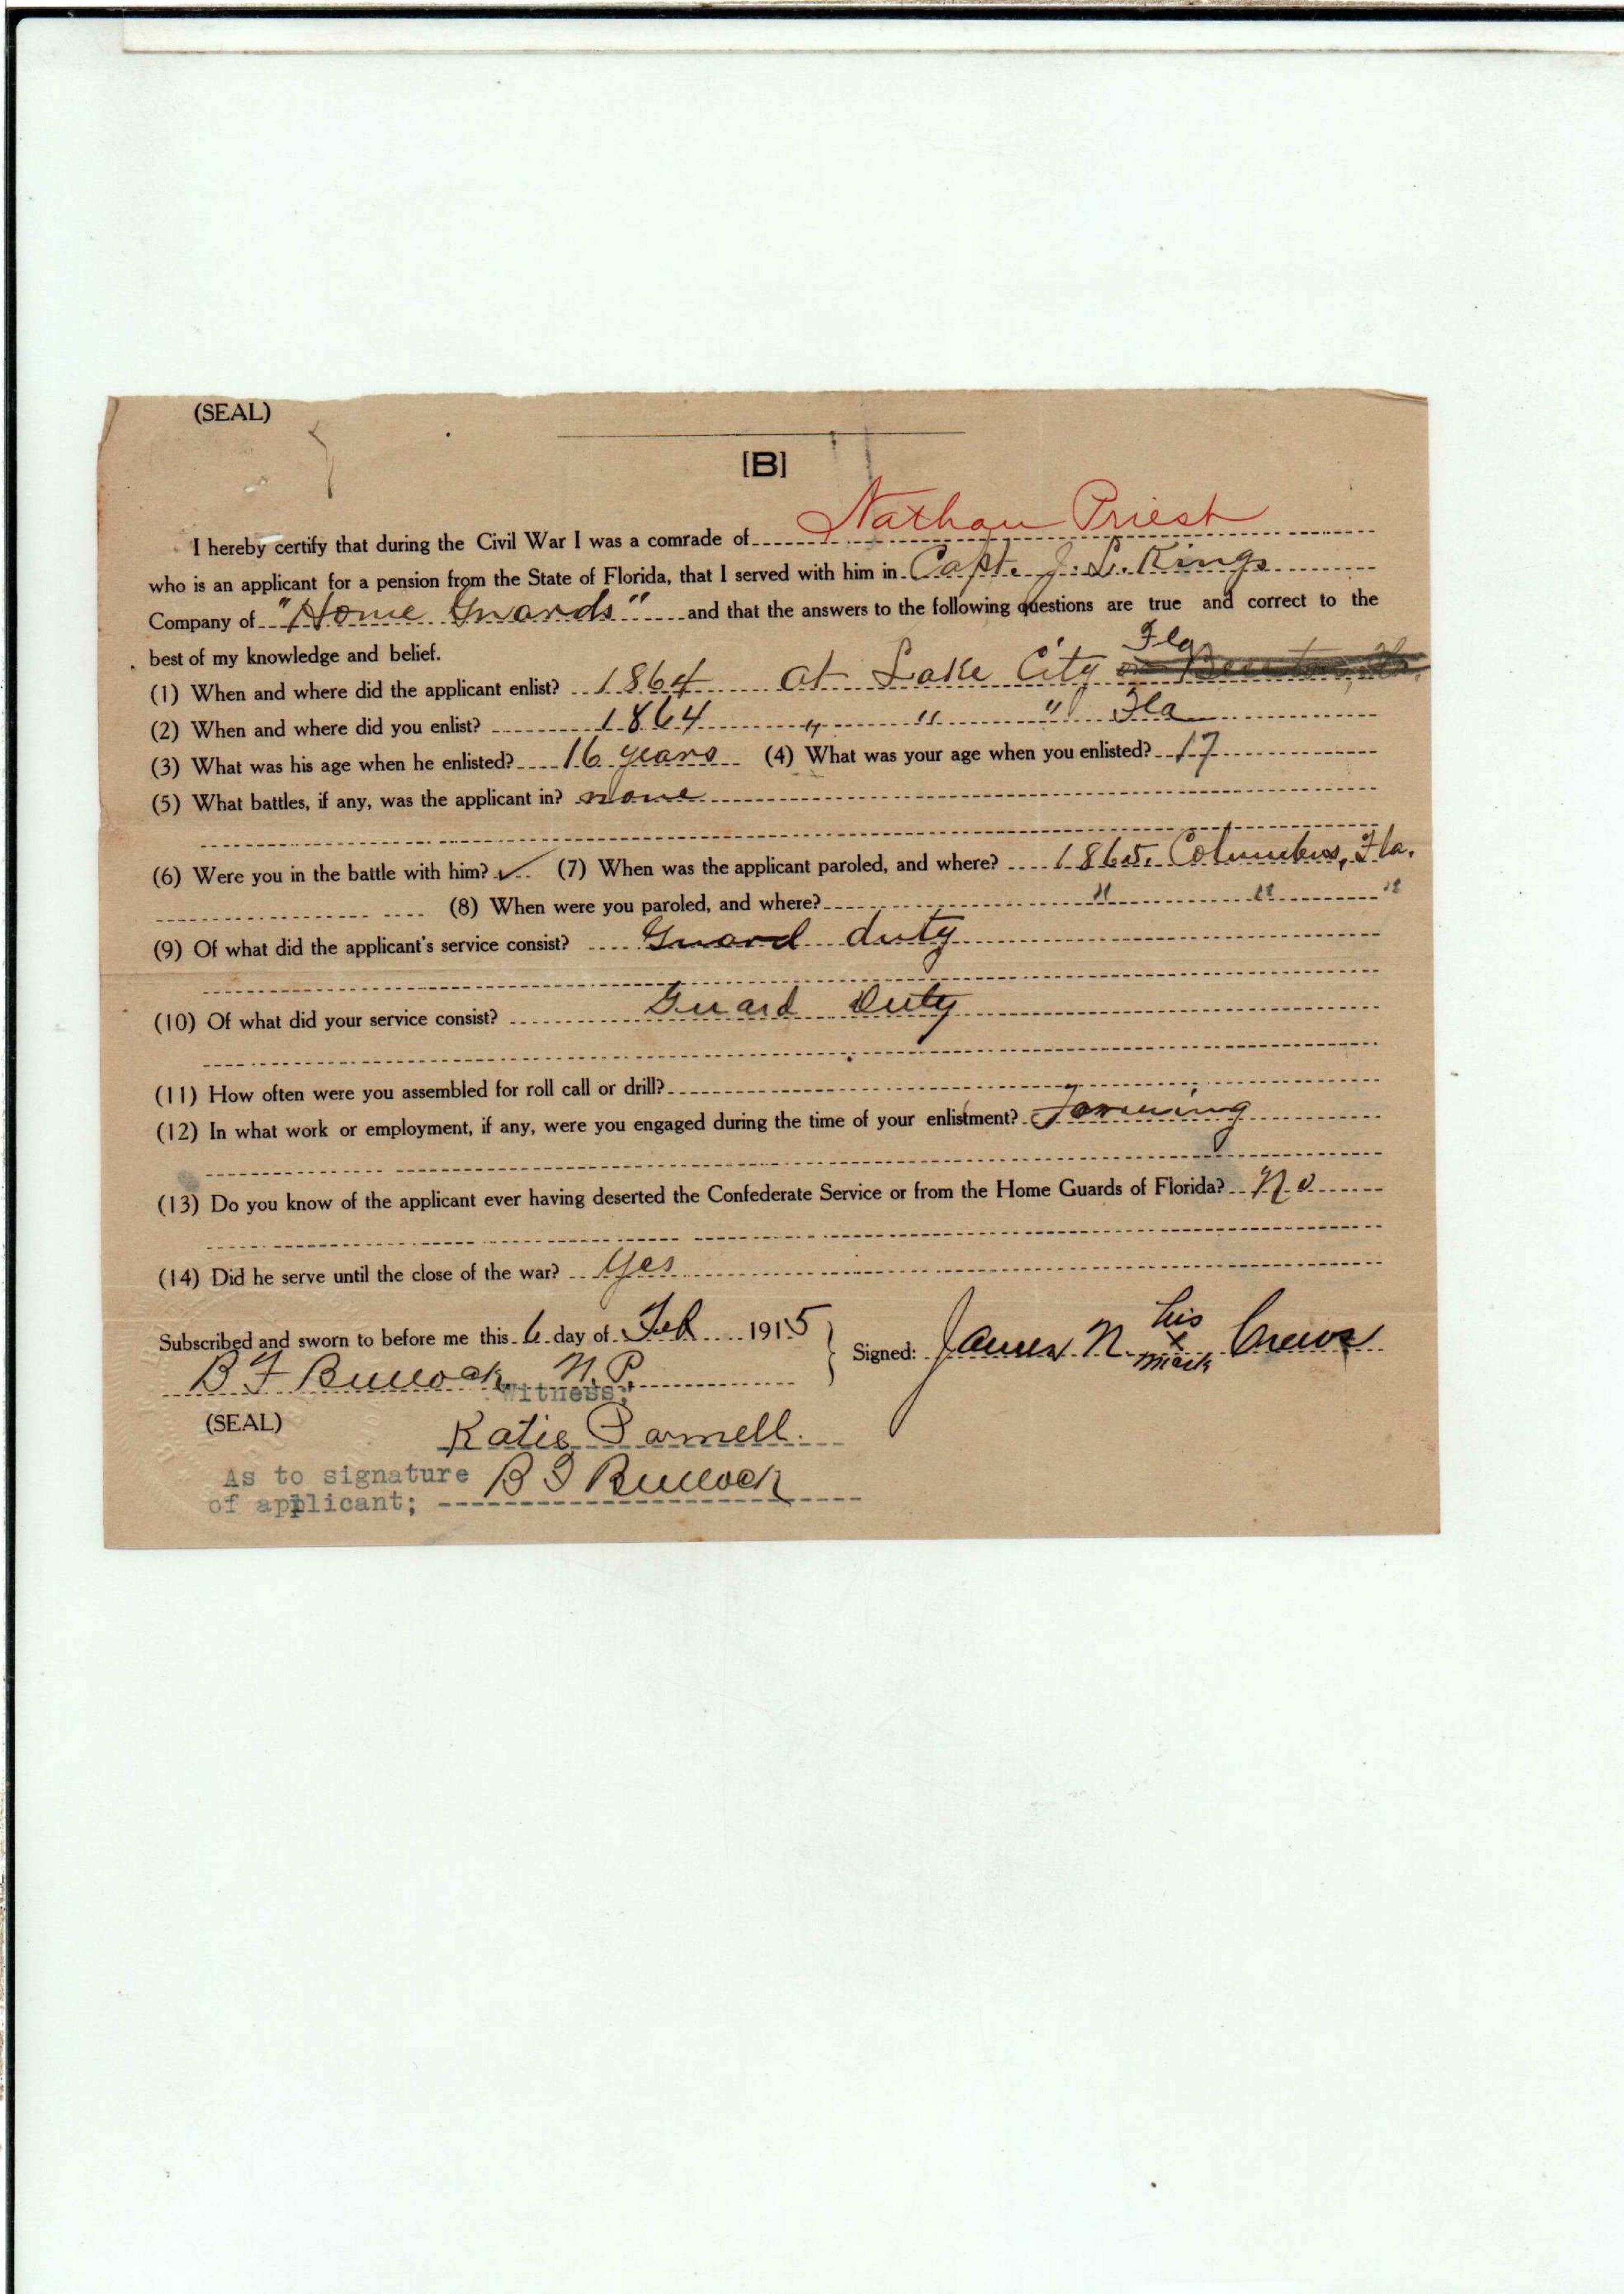 (SEAL)
[B]
I hereby certify that during the Civil War I was a comrade of Nathan Priest
who is an applicant for a pension from the State of Florida, that I served with him in Capt. J. L. Kings
Company of "Home Guards" and that the answers to the following questions are true and correct to the
best of my knowledge and belief.
Fla
(1) When and where did the applicant enlist? 1864 at Lake City
(2) When and where did you enlist? 1864 " " " Fla
(3) What was his age when he enlisted? 16 years (4) What was your age when you enlisted? 17
(5) What battles, if any, was the applicant in? none
(6) Were you in the battle with him? ✓ (7) When was the applicant paroled, and where? 1865. Columbus, Fla.
(8) When were you paroled, and where? " " "
(9) Of what did the applicant's service consist? Guard duty
(10) Of what did your service consist? Guard Duty
(11) How often were you assembled for roll call or drill?
(12) In what work or employment, if any, were you engaged during the time of your enlistment? Farming
(13) Do you know of the applicant ever having deserted the Confederate Service or from the Home Guards of Florida? No
(14) Did he serve until the close of the war? Yes
Subscribed and sworn to before me this 6 day of Feb 1915
Signed: James N. his x mark Crews
B F Bullock N.P.
Witness;
(SEAL)
Katie Parnell.
As to signature B F Bullock
of applicant;